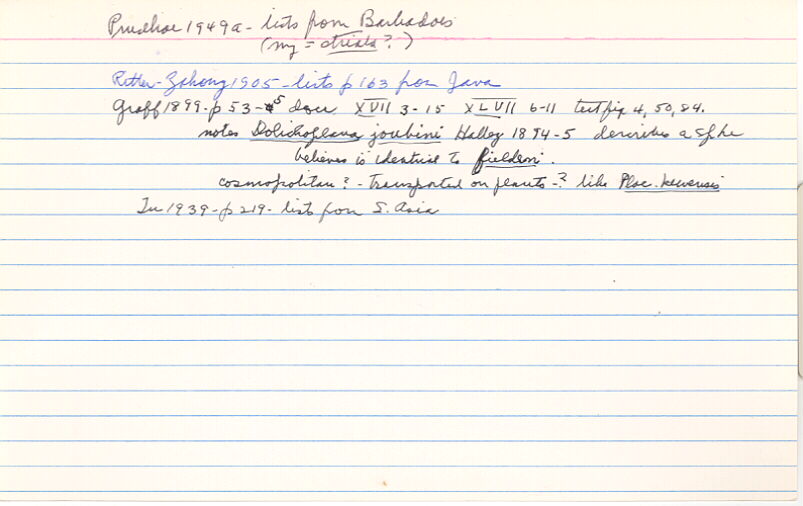 Prudhoe 1949a - lists from Barbadoes
(may = striata?)
Ritter-Zahony 1905 - lists p 163 from Java
Graff 1899 - p 53-5 descr XVII 3-15 XLVII 6-11 textfig 4, 50, 84.
notes Dolichoplana joubini Hallez 1894-5 describes a sp he
believes is identical to fieldeni.
cosmopolitan? - transported on plants -? like Plac. kewensis
Tu 1939 - p 219 - lists from S. Asia